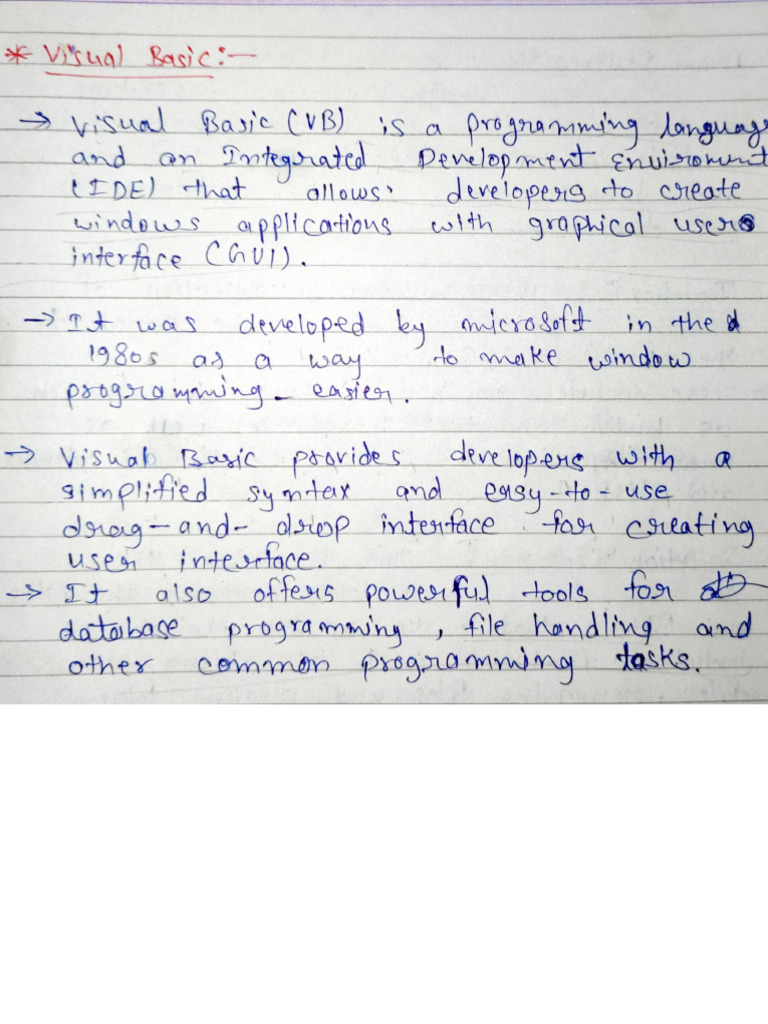 * Visual Basic:-
→ Visual Basic (VB) is a programming language
and an Integrated Development Environment
(IDE) that allows developers to create
windows applications with graphical user
interface (GUI).
→ It was developed by microsoft in the
1980s as a way to make window
programming - easier.
→ Visual Basic provides developers with a
simplified syntax and easy-to-use
drag-and-drop interface for creating
user interface.
→ It also offers powerful tools for
database programming, file handling and
other common programming tasks.